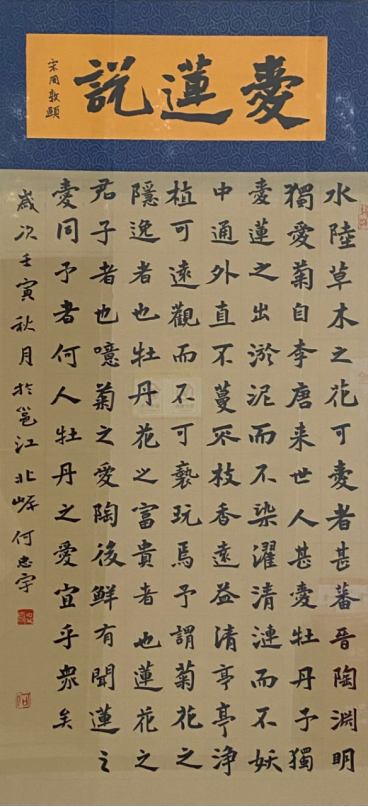 愛蓮說
宋周敦頤
水陸草木之花可愛者甚蕃晉陶淵明
獨愛菊自李唐來世人甚愛牡丹予獨
愛蓮之出淤泥而不染濯清漣而不妖
中通外直不蔓不枝香遠益清亭亭淨
植可遠觀而不可褻玩焉予謂菊花之
隱逸者也牡丹花之富貴者也蓮花之
君子者也噫菊之愛陶後鮮有聞蓮之
愛同予者何人牡丹之愛宜乎眾矣
歲次壬寅秋月於邕江北岸何忠宇